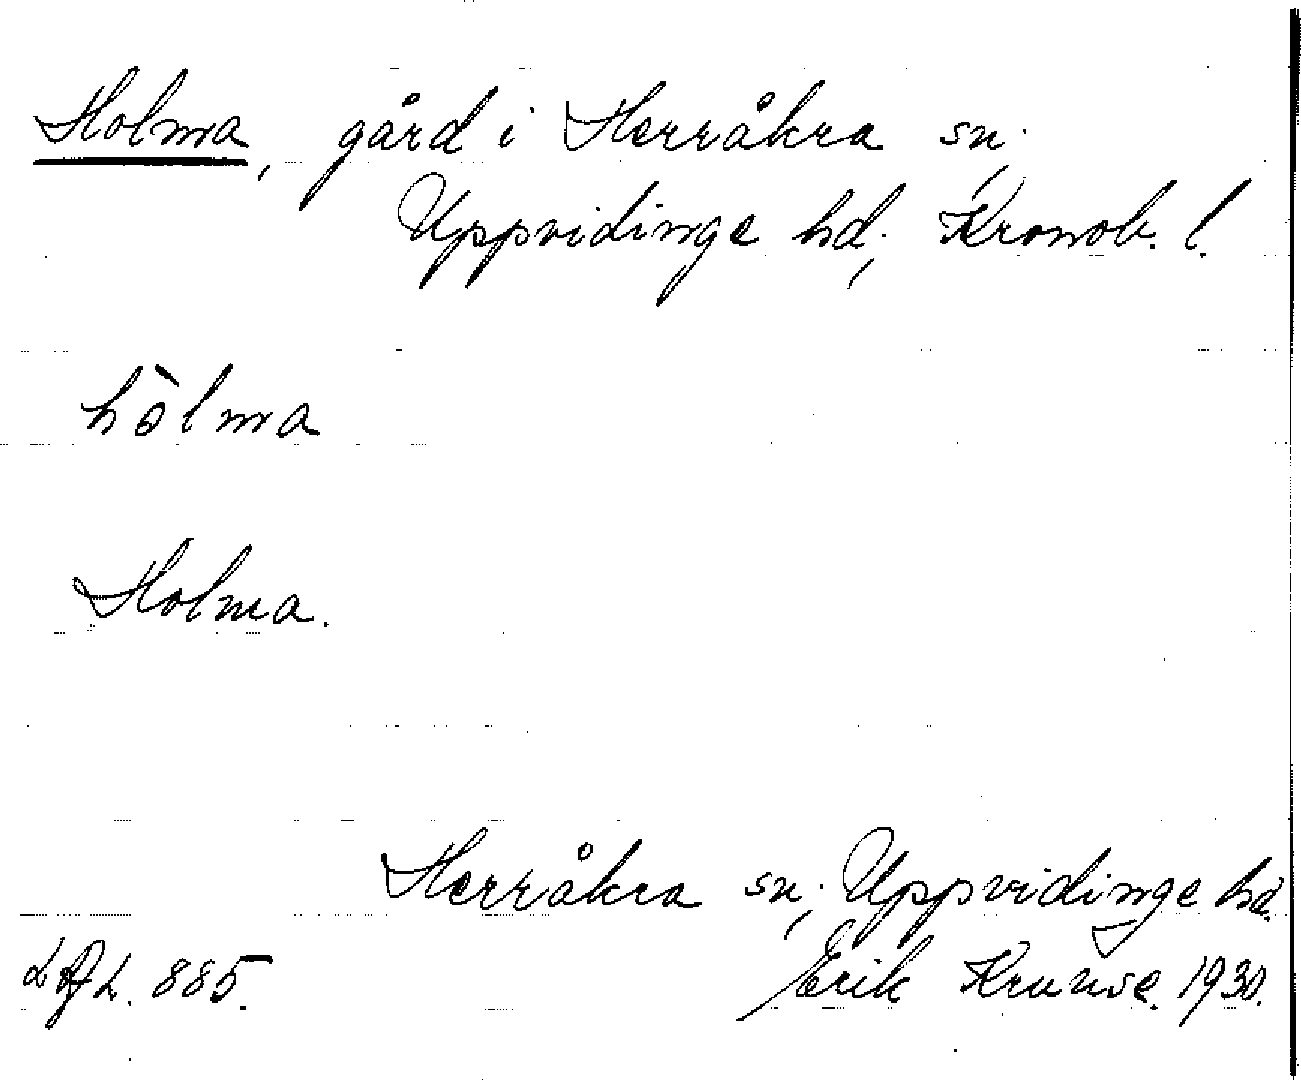 Holma, gård i Herråkra sn.,
Uppvidinge hd., Kronob. l.
hòlma
Holma.
Herråkra sn., Uppvidinge hd.
885. Erik Kruuse. 1930.